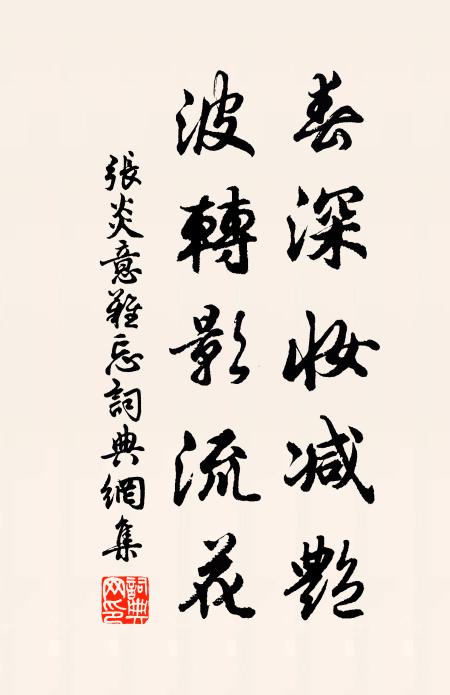 春深妆减艷
波轉影流花
張炎意難忘詞典網集
詞典网印